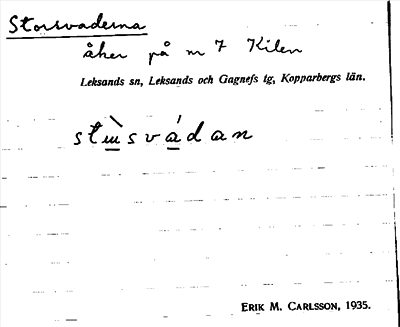 Storsvaderna
åker på nr 7 Kilen
Leksands sn, Leksands och Gagnefs tg, Kopparbergs län.
ERIK M. CARLSSON, 1935.